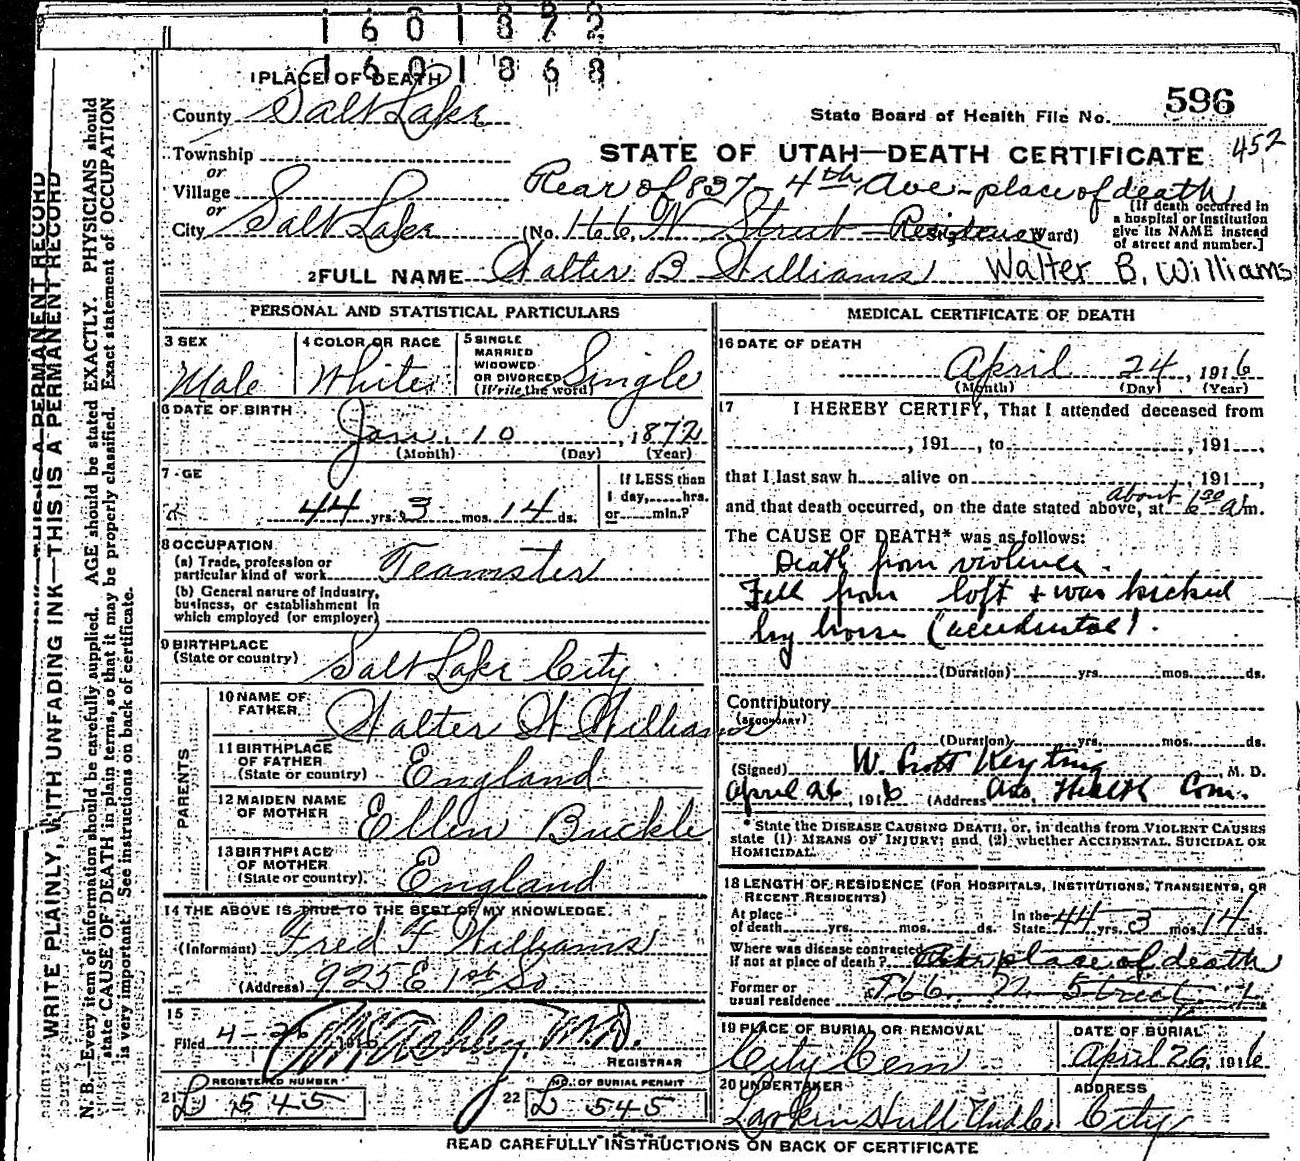 1 6 0 1 8 7 2
1 6 0 1 8 6 8
1 PLACE OF DEATH
County Salt Lake
State Board of Health File No. 596
Township
STATE OF UTAH—DEATH CERTIFICATE 452
or
Village
Rear of 837 - 4th Ave - place of death
or
City Salt Lake (No. 166 N Street - Residence Ward)
[If death occurred in a hospital or institution give its NAME instead of street and number.]
2 FULL NAME Walter B Williams Walter B. Williams
PERSONAL AND STATISTICAL PARTICULARS
3 SEX
Male
4 COLOR OR RACE
White
5 SINGLE
MARRIED
WIDOWED
OR DIVORCED
(Write the word)
Single
6 DATE OF BIRTH
Jan. 10, 1872
(Month) (Day) (Year)
7 GE
44 yrs. 3 mos. 14 ds.
If LESS than
1 day, hrs.
or min.?
8 OCCUPATION
(a) Trade, profession or
particular kind of work Teamster
(b) General nature of Industry,
business, or establishment in
which employed (or employer)
9 BIRTHPLACE
(State or country) Salt Lake City
PARENTS
10 NAME OF
FATHER Walter W. Williams
11 BIRTHPLACE
OF FATHER
(State or country) England
12 MAIDEN NAME
OF MOTHER Ellen Buckle
13 BIRTHPLACE
OF MOTHER
(State or country) England
14 THE ABOVE IS TRUE TO THE BEST OF MY KNOWLEDGE.
(Informant) Fred F Williams
(Address) 925 E 1st So
15
Filed 4-26 1916 M.D.
REGISTRAR
21 REGISTERED NUMBER
L 545
22 NO. OF BURIAL PERMIT
L 545
MEDICAL CERTIFICATE OF DEATH
16 DATE OF DEATH
April 24, 1916
(Month) (Day) (Year)
17 I HEREBY CERTIFY, That I attended deceased from
, 191 , to , 191 ,
that I last saw h alive on , 191 ,
about
and that death occurred, on the date stated above, at 6 30 a m.
The CAUSE OF DEATH* was as follows:
Death from violence.
Fell from loft + was kicked
by horse (accidental).
(Duration) yrs. mos. ds.
Contributory
(SECONDARY)
(Duration) yrs. mos. ds.
(Signed) W. Scott Keyting, M. D.
April 26, 1916 (Address Health Com.
* State the DISEASE CAUSING DEATH, or, in deaths from VIOLENT CAUSES
state (1) MEANS OF INJURY; and (2) whether ACCIDENTAL, SUICIDAL OR
HOMICIDAL.
18 LENGTH OF RESIDENCE (FOR HOSPITALS, INSTITUTIONS, TRANSIENTS, OR
RECENT RESIDENTS)
At place
of death yrs. mos. ds.
In the
State 44 yrs. 3 mos. 14 ds.
Where was disease contracted
If not at place of death? place of death
Former or
usual residence 166 N Street
19 PLACE OF BURIAL OR REMOVAL
City Cem
DATE OF BURIAL
April 26, 1916
20 UNDERTAKER
Larkin Hull
ADDRESS
City
READ CAREFULLY INSTRUCTIONS ON BACK OF CERTIFICATE
WRITE PLAINLY, WITH UNFADING INK—THIS IS A PERMANENT RECORD
N. B.—Every item of information should be carefully supplied. AGE should be stated EXACTLY. PHYSICIANS should
state CAUSE OF DEATH in plain terms, so that it may be properly classified. Exact statement of OCCUPATION
is very important. See instructions on back of certificate.